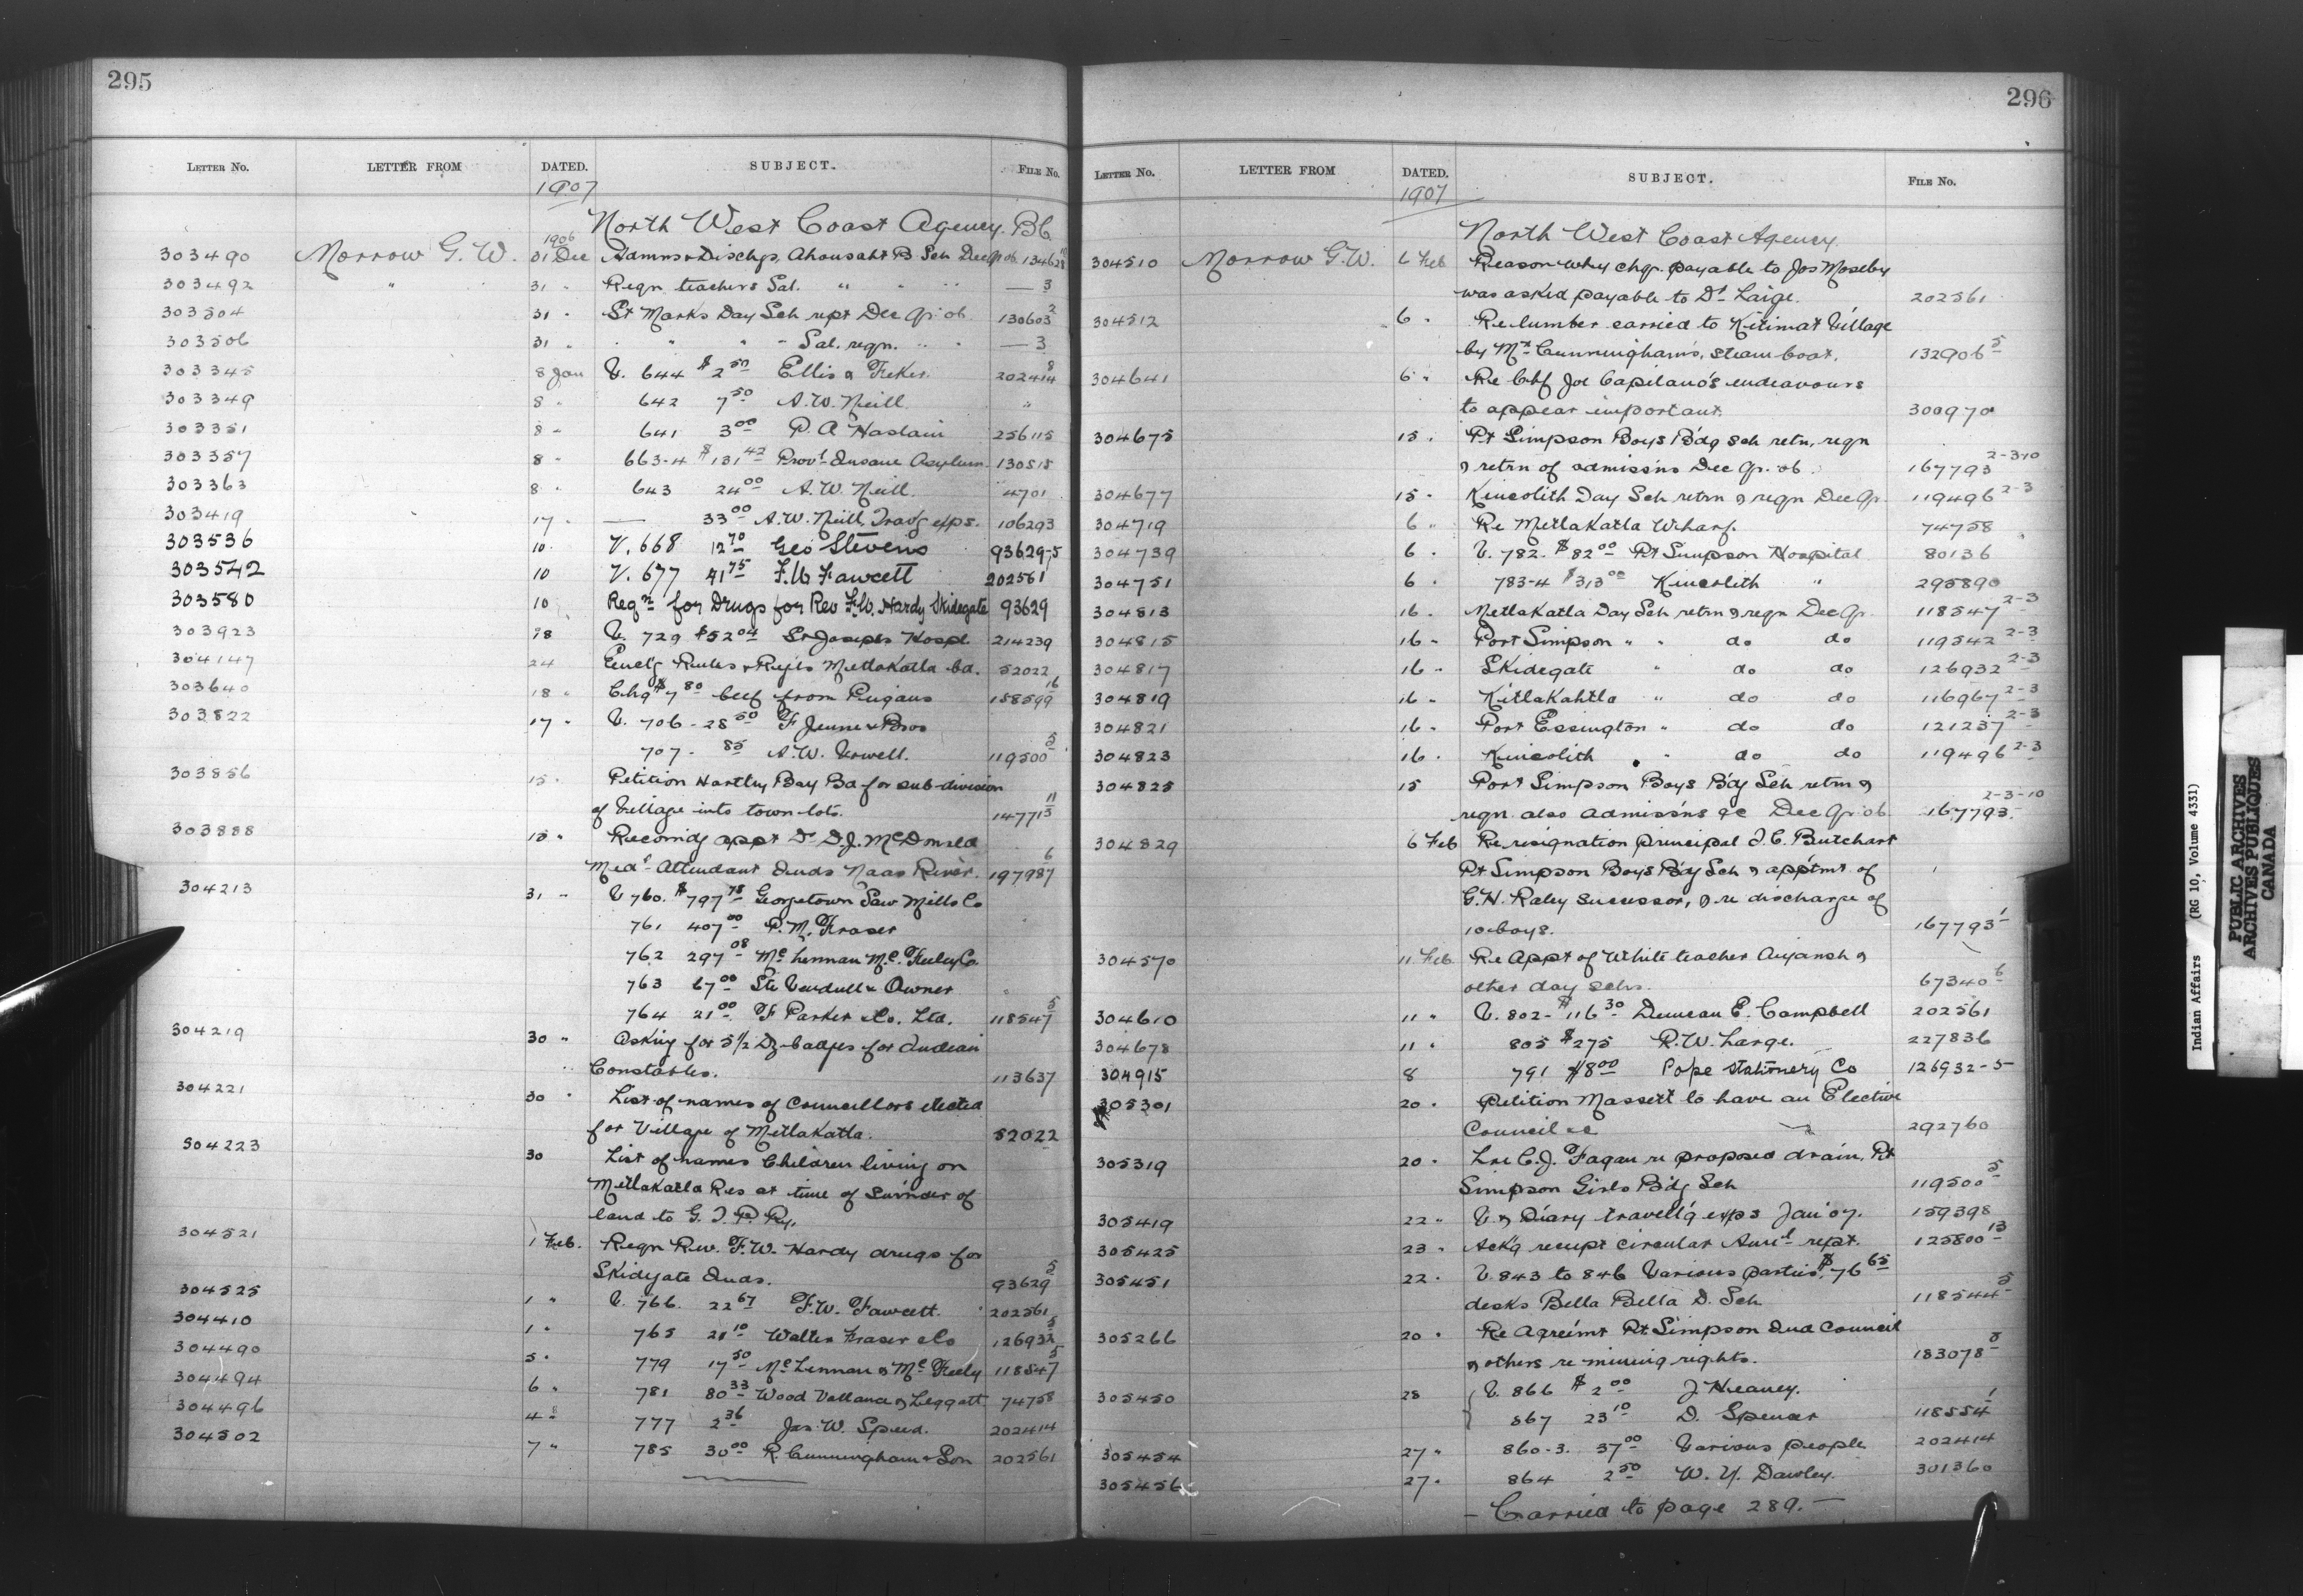 295
LETTER No. LETTER FROM DATED. SUBJECT. FILE No.
1907
North West Coast Agency. BC
303490 Morrow G. W. 1906 31 Dec Admns & Dischgs. Ahousaht B. Sch Dec Qr 06 134628
303492 " 31 " Reqn teachers Sal. " " " — 3
303504 31 " St Marks Day Sch rept Dec Qr 06 130603 2
303506 31 " " " " Sal. reqn. " " — 3
303345 8 Jan V. 644 $2 50 Ellis & 202414 8
303349 8 " 642 7 50 A. W. Neill "
303351 8 " 641 3 00 P. A Haslam 256115
303357 8 " 663-4 $131 42 Provl Insane Asylum 130515
303363 8 " 643 24 00 A. W. Neill. 4701
303419 17 " — 33 00 A. W. Neill Travg exps. 106293
303536 10 V. 668 12 70 Geo Stevens 93629-5
303542 10 V. 677 41 75 F.W Fawcett 202561
303580 10 Reqn for Drugs for Rev F.W. Hardy Skidegate 93629
303923 18 V. 729 $52 04 St Josephs Hospl 214239
304147 24 Enclg Rules & Regls Metlakatla bd. 52022
303640 18 " Chq $7 80 beef from 158599 16
303822 17 " V. 706 - 28 50 F Jeune & Bros
707 - 85 A. W. 119500 5
303856 15 " Petition Hartley Bay Bd for sub-division
of Village into town lots. 147715 11
303888 15 " Recomdg appt Dr D. J. McDonald
Medl Attendant Inds Naas River. 197987 6
304213 31 " V 760. $797 78 Georgetown Saw Mills Co
761 407 00 P. M. Fraser
762 297 08 McLennan Mc. Feeley Co
763 67 00 Str & Owner
764 21 00 F Parker & Co. Ltd. 118547 5
304219 30 " Asking for 5 1/2 Dz badges for Indian
Constables. 113637
304221 30 " List of names of Councillors elected
for Village of Metlakatla. 52022
304223 30 List of names Children living on
Metlakatla Res at time of Surrnder of
land to G. T. P. Ry.
304521 1 Feb. Reqn Rev. F. W. Hardy drugs for
Skidegate Inds. 93629 5
304525 1 " V. 766. 22 67 F. W. Fawcett. 202561
304410 1 " 765 21 10 Walter Fraser & Co 126932 5
304490 5 " 779 17 50 McLennan & McFeely 118547 5
304494 6 " 781 80 33 Wood Vallance & Leggatt 74758
304496 4 " 777 2 36 Jas. W. Speed. 202414
304502 7 " 785 30 00 R. Cunningham & Son 202561
296
LETTER No. LETTER FROM DATED. SUBJECT. FILE No.
1907
North West Coast Agency.
304510 Morrow G. W. 6 Feb Reason why chq. payable to Jos Moseby
was asked payable to Dr Large. 202561
304512 6 " Re lumber carried to Kitimat Village
by Mr Cunningham's, steam boat. 132906 5
304641 6 " Re Chf Joe Capilano's endeavours
to appear important. 300970
304675 15 " Pt Simpson Boys Bdg Sch retn, reqn
& retrn of admissns Dec Qr. 06 . 167793 2-3-10
304677 15 " Kincolith Day Sch retrn & reqn Dec Qr 119496 2-3
304719 6 " Re Metlakatla Wharf. 74758
304739 6 " V. 782. $82 00 Pt Simpson Hospital 80136
304751 6 " 783-4 $313 00 Kincolith " 295890
304813 16 " Metlakatla Day Sch retrn & reqn Dec Qr. 118547 2-3
304815 16 " Port Simpson " " do do 119542 2-3
304817 16 " Skidegate " do do 126932 2-3
304819 16 " Kitlakahtla " do do 116967 2-3
304821 16 " Port Essington " do do 121237 2-3
304823 16 " Kincolith " do do 119496 2-3
304825 15 Port Simpson Boys Bdg Sch retrn &
reqn also admissns &c Dec Qr 06 167793 2-3-10
304829 6 Feb Re resignation principal J. C. Butchart
Pt Simpson Boys Bdg Sch & apptmt of
G. H. Raley successor, & re discharge of
10 boys. 167793 1
304570 11 Feb Re Appt of White teacher Aiyansh &
other day schs. 67340 6
304610 11 " V. 802 - $116 30 Duncan E. Campbell 202561
304678 11 " 805 $275 R. W. Large. 227836
304915 8 791 $8 00 Pope Stationery Co 126932-5
305301 20 " Petition Massett to have an Elective
Council &c 292760
305319 20 " Lre C. J. Fagan re proposed drain, Pt
Simpson Girls Bdg Sch 119500 5
305419 22 " V. & Diary travellg exps Jan 07. 159398
305425 23 " Ackg receipt circular Annl rept. 125800 13
305451 22 " V. 843 to 846 Various parties $76 65
desks Bella Bella D. Sch 118544 5
305266 20 " Re Agreemt Pt Simpson Ind Council
& others re mining rights. 183078 8
305450 25 V. 866 $2 00 J. Heaney.
867 23 10 D. Spencer 118554 1
305454 27 " 860-3. 37 00 Various people 202414
305456 27 " 864 2 50 W. Y. Dawley. 301360
— Carried to page 289. —
Indian Affairs (RG 10, Volume 4331)
PUBLIC ARCHIVES
ARCHIVES PUBLIQUES
CANADA